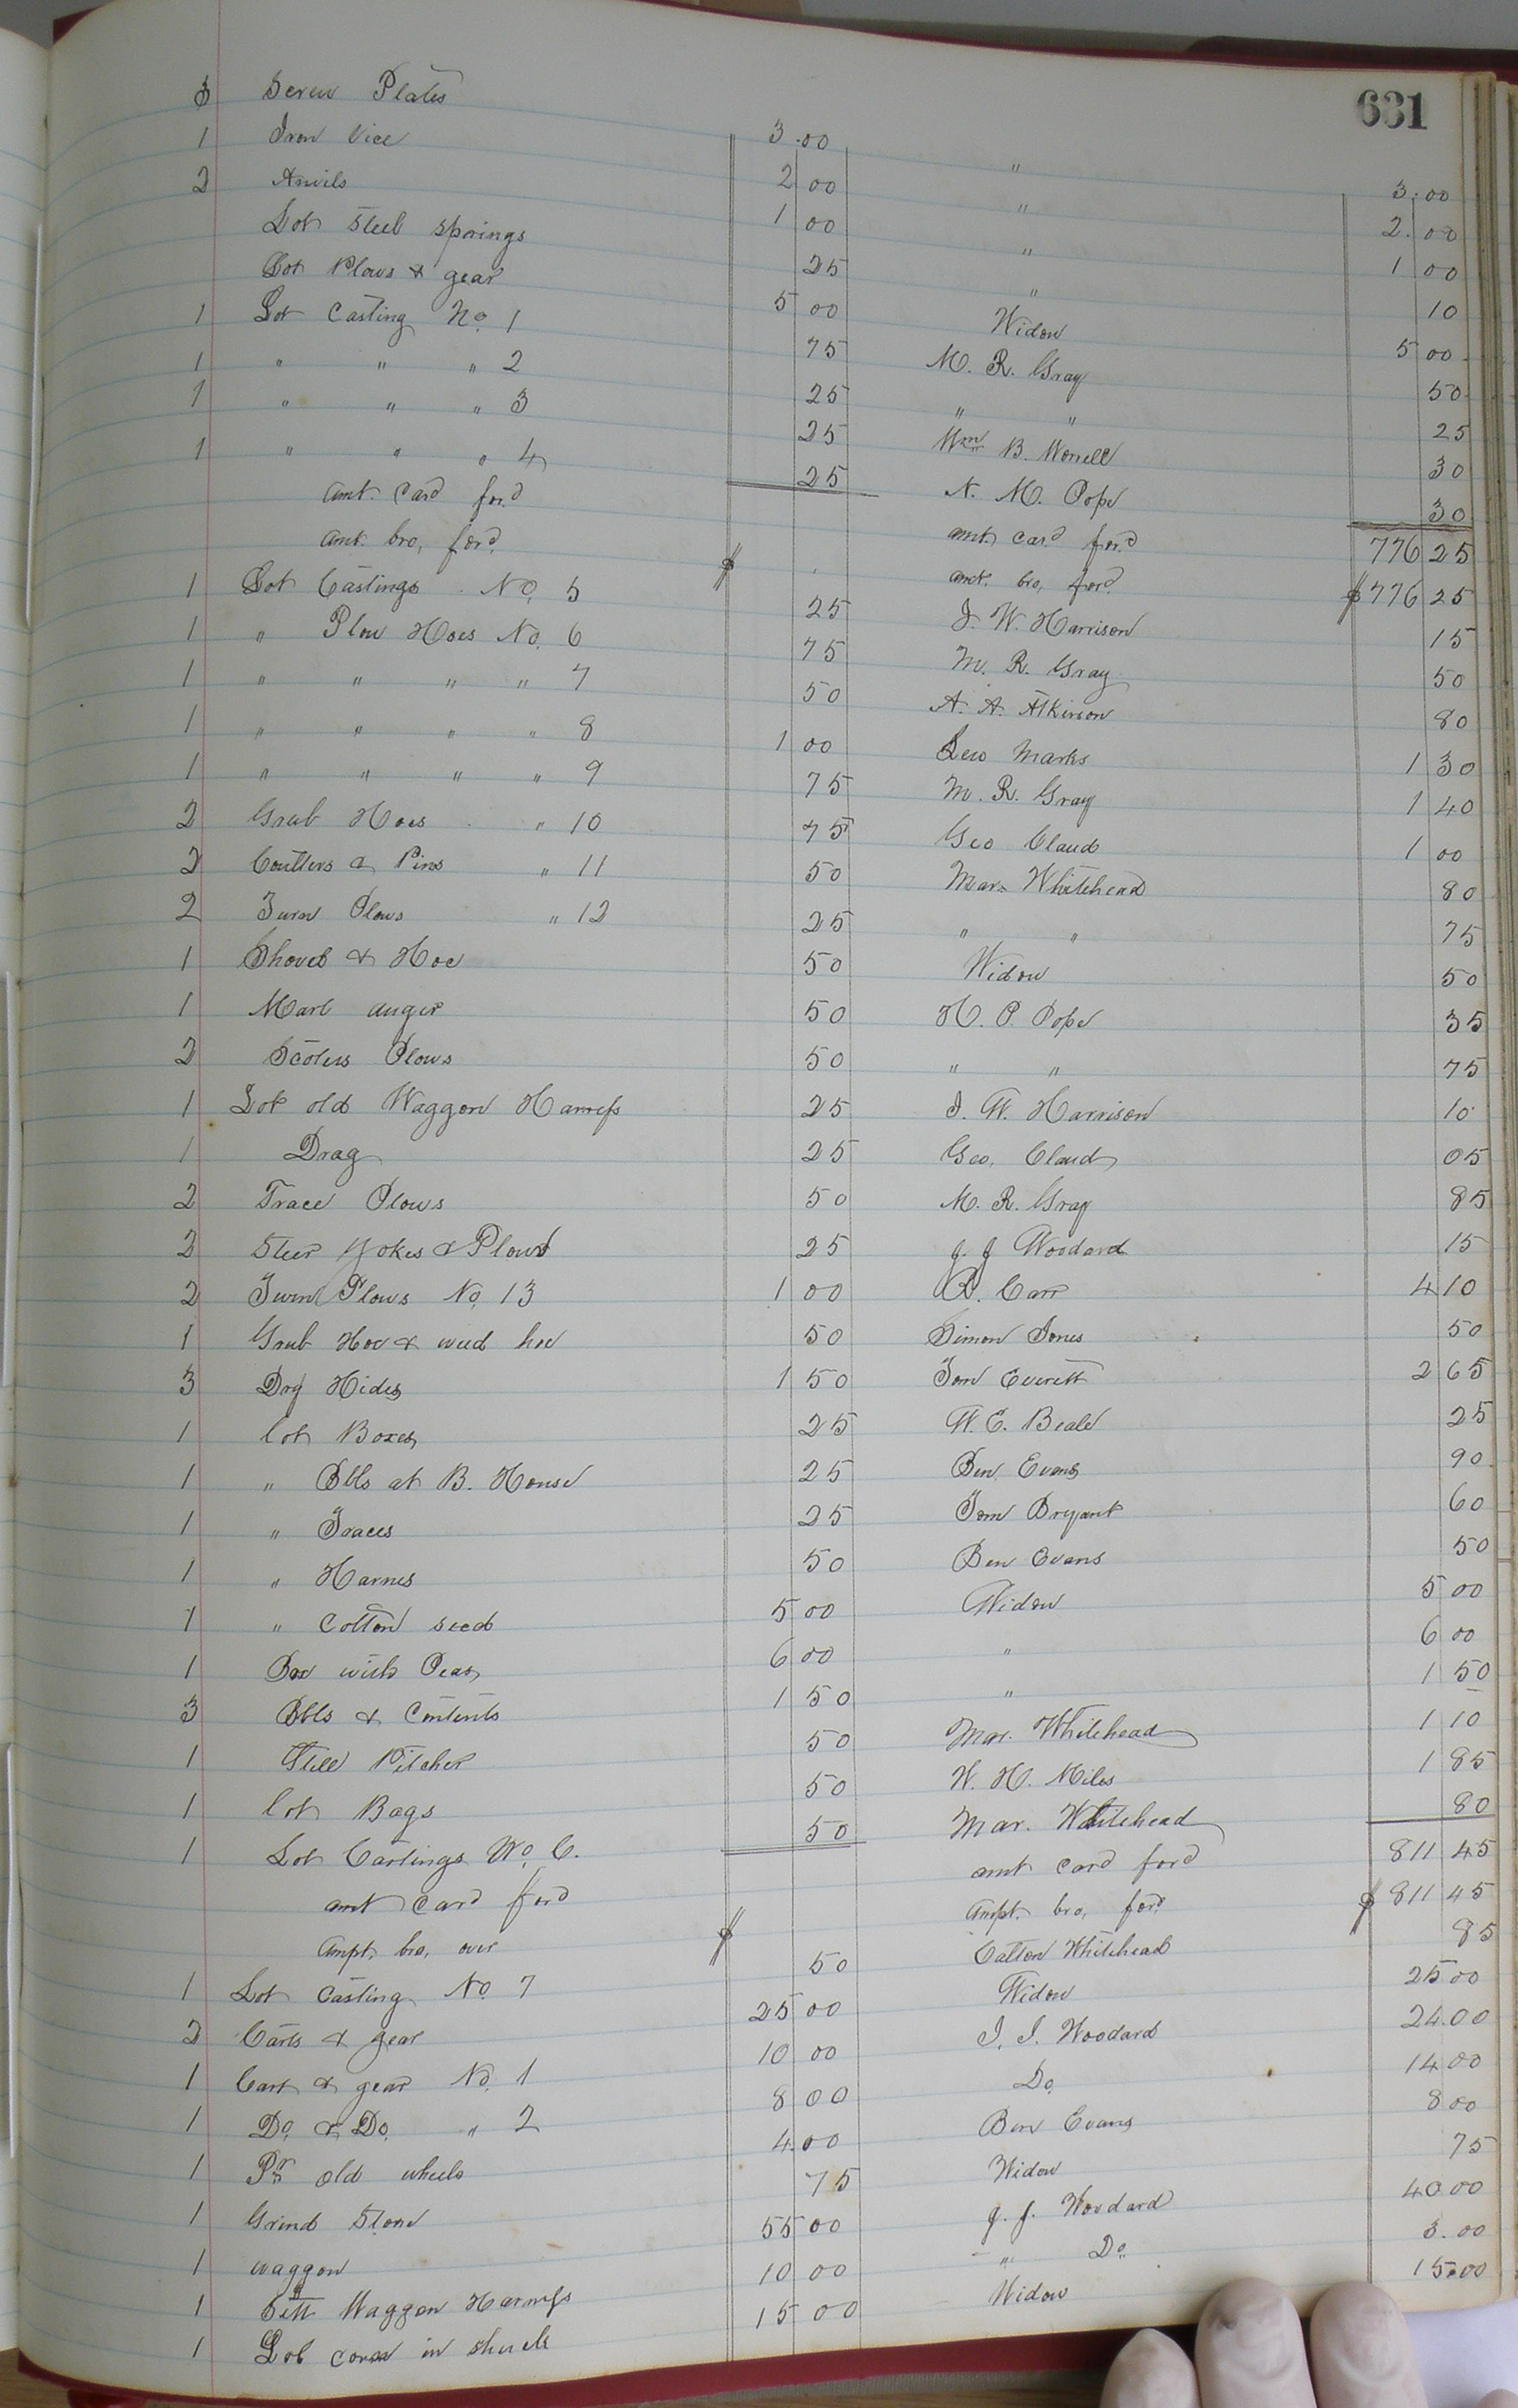 631
3 Screw Plates 3.00 " 3.00
1 Iron Vice 2 00 " 2.00
2 Anvils 1 00 " 1 00
Lot Steel Springs 25 " 10
Lot Plows & gear 5 00 Widow 5 00
1 Lot Casting No. 1 75 M. R. Gray 50
1 " " " 2 25 " " 25
1 " " " 3 25 Wm B. Worrell 30
1 " " " 4 25 N. M. Pope 30
amt. Card ford amt. card ford 776 25
amt. bro, ford $ amt. bro, ford $776 25
1 Lot Castings No. 5 25 J. W. Harrison 15
1 " Plow Hoes No. 6 75 M. R. Gray 50
1 " " " " 7 50 A. A. Atkinson 80
1 " " " " 8 1 00 Lew Marks 1 30
1 " " " " 9 75 M. R. Gray 1 40
2 Grub Hoes " 10 75 Geo Claud 1 00
2 Coulters & Pins " 11 50 Mar. Whitehead 80
2 Turn Plows " 12 25 " " 75
1 Shovel & Hoe 50 Widow 50
1 Marl auger 50 H. P. Pope 35
2 Scoters Plows 50 " " 75
1 Lot old Waggon Harness 25 J. W. Harrison 10
1 Drag 25 Geo. Claud 05
2 Trace Plows 50 M. R. Gray 85
2 Steer Yokes & Plows 25 J. J. Woodard 15
2 Turn Plows No. 13 1 00 R. Carr 4 10
1 Grub Hoe & weed hoe 50 Simon Jones 50
3 Dry Hides 1 50 Tom Everett 2 65
1 lot Boxes 25 W. E. Beale 25
1 " Bbls at B. House 25 Ben Evans 90
1 " Traces 25 Tom Bryant 60
1 " Harnes 50 Ben Evans 50
1 " Cotton seed 5 00 Widow 5 00
1 Box with Peas 6 00 " 6 00
3 Bbls & Contents 1 50 " 1 50
1 Still Pitcher 50 Mar. Whitehead 1 10
1 lot Bags 50 W. H. Miles 1 85
1 Lot Castings No. 6. 50 Mar. Whitehead 80
amt Card ford amt card ford 811 45
Ampt. bro, over $ Ampt. bro, ford $811 45
1 Lot Casting No. 7 50 Calton Whitehead 85
2 Carts & gear 25 00 Widow 25 00
1 Cart & gear No. 1 10 00 J. J. Woodard 24.00
1 Do. & Do. " 2 8 00 Do. 14 00
1 Pr. old wheels 4.00 Ben Evans 8 00
1 Grind Stone 75 Widow 75
1 waggon 55 00 J. J. Woodard 40 00
1 Sett Waggon Harness 10 00 " Do. 3.00
1 Lot corn in shuck 15 00 Widow 15.00